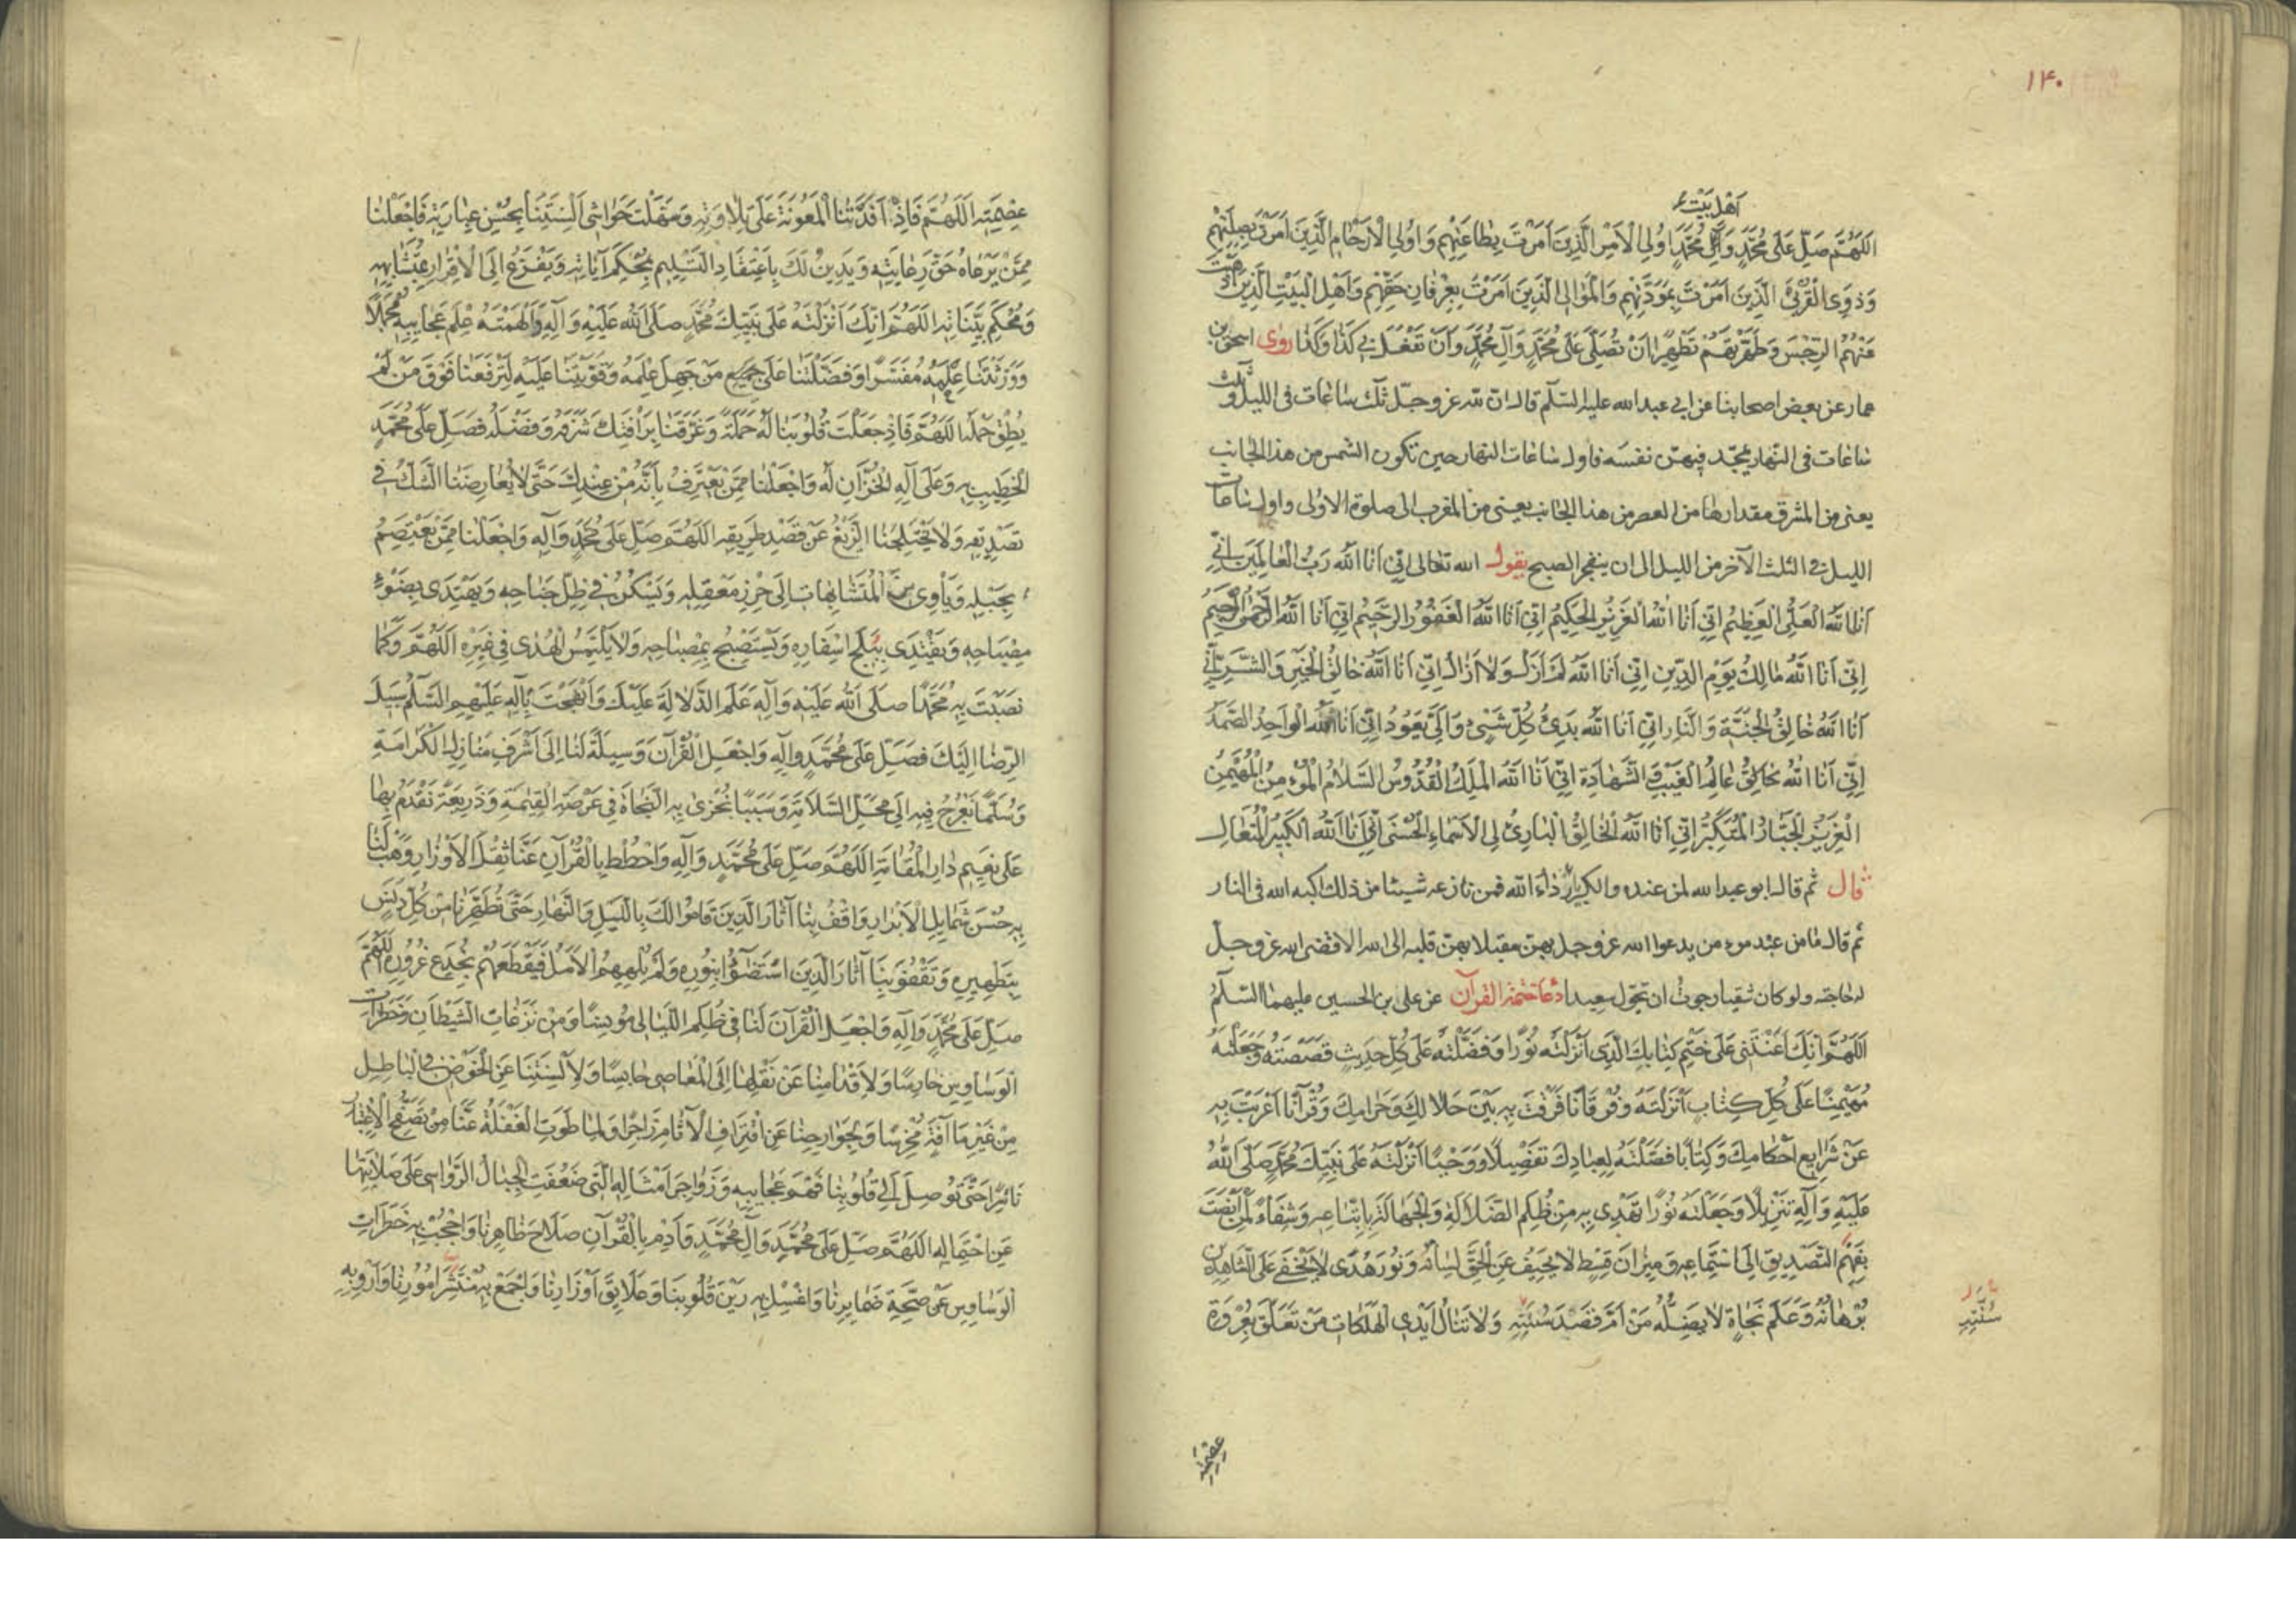 ۱۴۰
اَهْلِ بَيْتِ
اَللّٰهُمَّ صَلِّ عَلىٰ مُحَمَّدٍ وَآلِ مُحَمَّدٍ اُولِى الْاَمْرِ الَّذِينَ اَمَرْتَ بِطٰاعَتِهِمْ وَاُولِى الْاَرْحٰامِ الَّذِينَ اَمَرْتَ بِصِلَتِهِمْ
وَذَوِى الْقُرْبىٰ الَّذِينَ اَمَرْتَ بِمَوَدَّتِهِمْ وَالْمَوٰالِى الَّذِينَ اَمَرْتَ بِعِرْفٰانِ حَقِّهِمْ وَاَهْلِ الْبَيْتِ الَّذِينَ اَذْهَبْتَ
عَنْهُمُ الرِّجْسَ وَطَهَّرْتَهُمْ تَطْهِيرًا اَنْ تُصَلِّىَ عَلىٰ مُحَمَّدٍ وَآلِ مُحَمَّدٍ وَاَنْ تَفْعَلَ بِى كَذٰا وَكَذٰا روى اسحق بن
عمار عن بعض اصحابنا عن ابى عبد الله عليه السلام قال ان لله عز وجل ثلث ساعات فى الليل وثلث
ساعات فى النهار يمجد فيهن نفسه فاول ساعات النهار حين تكون الشمس من هذا الجانب
يعنى من المشرق مقدارها من العصر من هذا الجانب يعنى من المغرب الى صلوة الاولى واول ساعات
الليل فى الثلث الآخر من الليل الى ان ينفجر الصبح يقول الله تعالى اِنِّى اَنَا اللّٰهُ رَبُّ الْعٰالَمِينَ اِنِّى
اَنَا اللّٰهُ الْعَلِىُّ الْعَظِيمُ اِنِّى اَنَا اللّٰهُ الْعَزِيزُ الْحَكِيمُ اِنِّى اَنَا اللّٰهُ الْغَفُورُ الرَّحِيمُ اِنِّى اَنَا اللّٰهُ الرَّحْمٰنُ الرَّحِيمُ
اِنِّى اَنَا اللّٰهُ مٰالِكُ يَوْمِ الدِّينِ اِنِّى اَنَا اللّٰهُ لَمْ اَزَلْ وَلٰا اَزٰالُ اِنِّى اَنَا اللّٰهُ خٰالِقُ الْخَيْرِ وَالشَّرِّ اِنِّى
اَنَا اللّٰهُ خٰالِقُ الْجَنَّةِ وَالنّٰارِ اِنِّى اَنَا اللّٰهُ بَدِئُ كُلِّ شَىْءٍ وَاِلَىَّ يَعُودُ اِنِّى اَنَا اللّٰهُ الْوٰاحِدُ الصَّمَدُ
اِنِّى اَنَا اللّٰهُ خٰالِقُ عٰالِمُ الْغَيْبِ وَالشَّهٰادَةِ اِنِّى اَنَا اللّٰهُ الْمَلِكُ الْقُدُّوسُ السَّلٰامُ الْمُؤْمِنُ الْمُهَيْمِنُ
الْعَزِيزُ الْجَبّٰارُ الْمُتَكَبِّرُ اِنِّى اَنَا اللّٰهُ الْخٰالِقُ الْبٰارِئُ لِى الْاَسْمٰاءُ الْحُسْنىٰ اِنِّى اَنَا اللّٰهُ الْكَبِيرُ الْمُتَعٰالِ
قال ثم قال ابو عبد الله لمن عنده والكبرياء رداء الله فمن نازعه شيئا من ذلك اكبه الله فى النار
ثم قال ما من عبد مومن يدعوا الله عز وجل بهن مقبلا بهن قلبه الى الله الا قضى الله عز وجل
له حاجته ولو كان شقيا رجوت ان يحول سعيدا دعاء ختمة القرآن عن على بن الحسين عليهما السلام
اَللّٰهُمَّ اِنَّكَ اَعَنْتَنِى عَلىٰ خَتْمِ كِتٰابِكَ الَّذِى اَنْزَلْتَهُ نُورًا وَفَضَّلْتَهُ عَلىٰ كُلِّ حَدِيثٍ قَصَصْتَهُ وَجَعَلْتَهُ
مُهَيْمِنًا عَلىٰ كُلِّ كِتٰابٍ اَنْزَلْتَهُ وَفُرْقٰانًا فَرَقْتَ بِهِ بَيْنَ حَلٰالِكَ وَحَرٰامِكَ وَقُرْآنًا اَعْرَبْتَ بِهِ
عَنْ شَرٰايِعِ اَحْكٰامِكَ وَكِتٰابًا فَصَّلْتَهُ لِعِبٰادِكَ تَفْصِيلًا وَوَحْيًا اَنْزَلْتَهُ عَلىٰ نَبِيِّكَ مُحَمَّدٍ صَلَّى اللّٰهُ
عَلَيْهِ وَآلِهِ تَنْزِيلًا وَجَعَلْتَهُ نُورًا نَهْتَدِى بِهِ مِنْ ظُلَمِ الضَّلٰالَةِ وَالْجَهٰالَةِ بِاتِّبٰاعِهِ وَشِفٰاءً لِمَنْ اَنْصَتَ
بِفَهْمِ التَّصْدِيقِ اِلَى اسْتِمٰاعِهِ وَمِيزٰانَ قِسْطٍ لٰا يَحِيفُ عَنِ الْحَقِّ لِسٰانُهُ وَنُورَ هُدًى لٰا يَخْفىٰ عَلَى الشّٰاهِدِينَ
بُرْهٰانُهُ وَعَلَمَ نَجٰاةٍ لٰا يَضِلُّ مَنْ اَمَّ قَصْدَ سُنَّتِهِ وَلٰا تَنٰالُ اَيْدِى الْهَلَكٰاتِ مَنْ تَعَلَّقَ بِعُرْوَةِ
سُنَّتِهِ
عِصْمَتِهِ
عِصْمَتِهِ اَللّٰهُمَّ فَاِذْ اَفَدْتَنَا الْمَعُونَةَ عَلىٰ تِلٰاوَتِهِ وَسَهَّلْتَ حَوٰاشِى اَلْسِنَتِنٰا بِحُسْنِ عِبٰارَتِهِ فَاجْعَلْنٰا
مِمَّنْ يَرْعٰاهُ حَقَّ رِعٰايَتِهِ وَيَدِينُ لَكَ بِاعْتِقٰادِ التَّسْلِيمِ بِمُحْكَمِ آيٰاتِهِ وَيَفْزَعُ اِلَى الْاِقْرٰارِ بِمُتَشٰابِهِهِ
وَمُحْكَمِ بَيِّنٰاتِهِ اَللّٰهُمَّ اِنَّكَ اَنْزَلْتَهُ عَلىٰ نَبِيِّكَ مُحَمَّدٍ صَلَّى اللّٰهُ عَلَيْهِ وَآلِهِ وَاَلْهَمْتَهُ عِلْمَ عَجٰايِبِهِ مُجْمَلًا
وَوَرَّثْتَنٰا عِلْمَهُ مُفَسَّرًا وَفَضَّلْتَنٰا عَلىٰ جَمِيعِ مَنْ جَهِلَ عِلْمَهُ وَقَوَّيْتَنٰا عَلَيْهِ لِتَرْفَعَنٰا فَوْقَ مَنْ لَمْ
يُطِقْ حَمْلَهُ اَللّٰهُمَّ فَاِذْ جَعَلْتَ قُلُوبَنٰا لَهُ حَمَلَةً وَعَرَّفْتَنٰا بِرَاْفَتِكَ شَرَفَهُ وَفَضْلَهُ فَصَلِّ عَلىٰ مُحَمَّدٍ
الْخَطِيبِ بِهِ وَعَلىٰ آلِهِ الْخُزّٰانِ لَهُ وَاجْعَلْنٰا مِمَّنْ يَعْتَرِفُ بِاَنَّهُ مِنْ عِنْدِكَ حَتّىٰ لٰا يُعٰارِضَنَا الشَّكُّ فِى
تَصْدِيقِهِ وَلٰا يَخْتَلِجَنَا الزَّيْغُ عَنْ قَصْدِ طَرِيقِهِ اَللّٰهُمَّ صَلِّ عَلىٰ مُحَمَّدٍ وَآلِهِ وَاجْعَلْنٰا مِمَّنْ يَعْتَصِمُ
بِحَبْلِهِ وَيَاْوِى مِنَ الْمُتَشٰابِهٰاتِ اِلىٰ حِرْزِ مَعْقِلِهِ وَيَسْكُنُ فِى ظِلِّ جَنٰاحِهِ وَيَهْتَدِى بِضَوْءِ
مِصْبٰاحِهِ وَيَقْتَدِى بِتَبَلُّجِ اِسْفٰارِهِ وَيَسْتَصْبِحُ بِمِصْبٰاحِهِ وَلٰا يَلْتَمِسُ الْهُدىٰ فِى غَيْرِهِ اَللّٰهُمَّ وَكَمٰا
نَصَبْتَ بِهِ مُحَمَّدًا صَلَّى اللّٰهُ عَلَيْهِ وَآلِهِ عَلَمَ الدَّلٰالَةِ عَلَيْكَ وَاَنْهَجْتَ بِآلِهِ عَلَيْهِمُ السَّلٰمُ سَبِيلَ
الرِّضٰا اِلَيْكَ فَصَلِّ عَلىٰ مُحَمَّدٍ وَآلِهِ وَاجْعَلِ الْقُرْآنَ وَسِيلَةً لَنٰا اِلىٰ اَشْرَفِ مَنٰازِلِ الْكَرٰامَةِ
وَسُلَّمًا نَعْرُجُ فِيهِ اِلىٰ مَحَلِّ السَّلٰامَةِ وَسَبَبًا نُجْزىٰ بِهِ النَّجٰاةَ فِى عَرْصَةِ الْقِيٰمَةِ وَذَرِيعَةً نَقْدَمُ بِهٰا
عَلىٰ نَعِيمِ دٰارِ الْمُقٰامَةِ اَللّٰهُمَّ صَلِّ عَلىٰ مُحَمَّدٍ وَآلِهِ وَاحْطُطْ بِالْقُرْآنِ عَنّٰا ثِقْلَ الْاَوْزٰارِ وَهَبْ لَنٰا
بِهِ حُسْنَ شَمٰايِلِ الْاَبْرٰارِ وَاقْفُ بِنٰا آثٰارَ الَّذِينَ قٰامُوا لَكَ بِاللَّيْلِ وَالنَّهٰارِ حَتّىٰ تُطَهِّرَنٰا مِنْ كُلِّ دَنَسٍ
بِتَطْهِيرِهِ وَتَقْفُوَ بِنٰا آثٰارَ الَّذِينَ اسْتَضٰٓؤُا بِنُورِهِ وَلَمْ يُلْهِهِمُ الْاَمَلُ فَيَقْطَعَهُمْ بِخُدَعِ غُرُورِهِ اَللّٰهُمَّ
صَلِّ عَلىٰ مُحَمَّدٍ وَآلِهِ وَاجْعَلِ الْقُرْآنَ لَنٰا فِى ظُلَمِ اللَّيٰالِى مُونِسًا وَمِنْ نَزَغٰاتِ الشَّيْطٰانِ وَخَطَرٰاتِ
الْوَسٰاوِسِ حٰارِسًا وَلِاَقْدٰامِنٰا عَنْ نَقْلِهٰا اِلَى الْمَعٰاصِى حٰابِسًا وَلِاَلْسِنَتِنٰا عَنِ الْخَوْضِ فِى الْبٰاطِلِ
مِنْ غَيْرِ مٰا آفَةٍ مُخْرِسًا وَلِجَوٰارِحِنٰا عَنِ اقْتِرٰافِ الْآثٰامِ زٰاجِرًا وَلِمٰا طَوَتِ الْغَفْلَةُ عَنّٰا مِنْ تَصَفُّحِ الْاِعْتِبٰارِ
نٰاشِرًا حَتّىٰ تُوصِلَ اِلىٰ قُلُوبِنٰا فَهْمَ عَجٰايِبِهِ وَزَوٰاجِرَ اَمْثٰالِهِ الَّتِى ضَعُفَتِ الْجِبٰالُ الرَّوٰاسِى عَلىٰ صَلٰابَتِهٰا
عَنِ احْتِمٰالِهِ اَللّٰهُمَّ صَلِّ عَلىٰ مُحَمَّدٍ وَآلِ مُحَمَّدٍ وَاَدِمْ بِالْقُرْآنِ صَلٰاحَ ظٰاهِرِنٰا وَاحْجُبْ بِهِ خَطَرٰاتِ
الْوَسٰاوِسِ عَنْ صِحَّةِ ضَمٰايِرِنٰا وَاغْسِلْ بِهِ رَيْنَ قُلُوبِنٰا وَعَلٰايِقَ اَوْزٰارِنٰا وَاجْمَعْ بِهِ مُنْتَشَرَ اُمُورِنٰا وَاَرْوِ بِهِ